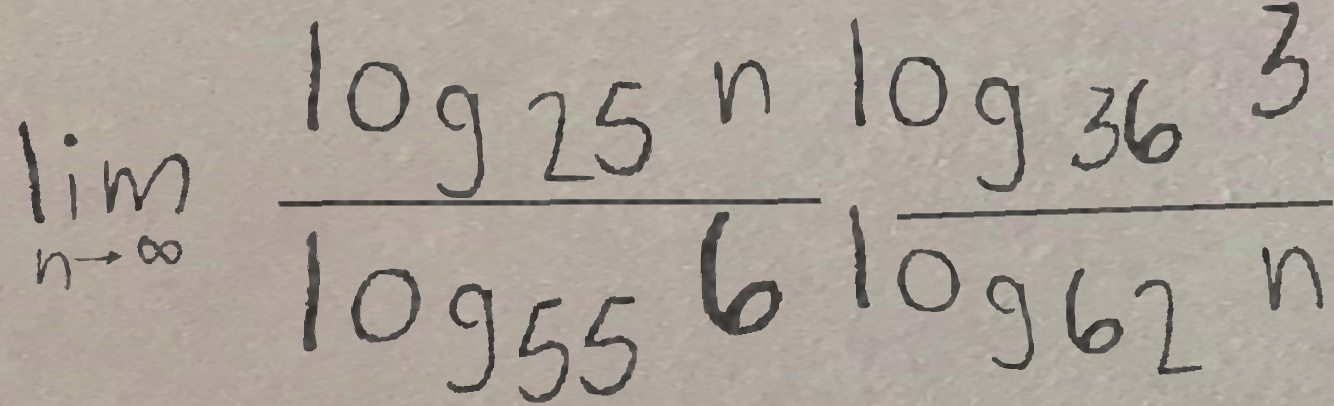 \lim_{n \to \infty} \frac{\log_{25} n}{\log_{55} 6} \frac{\log_{36} 3}{\log_{62} n}